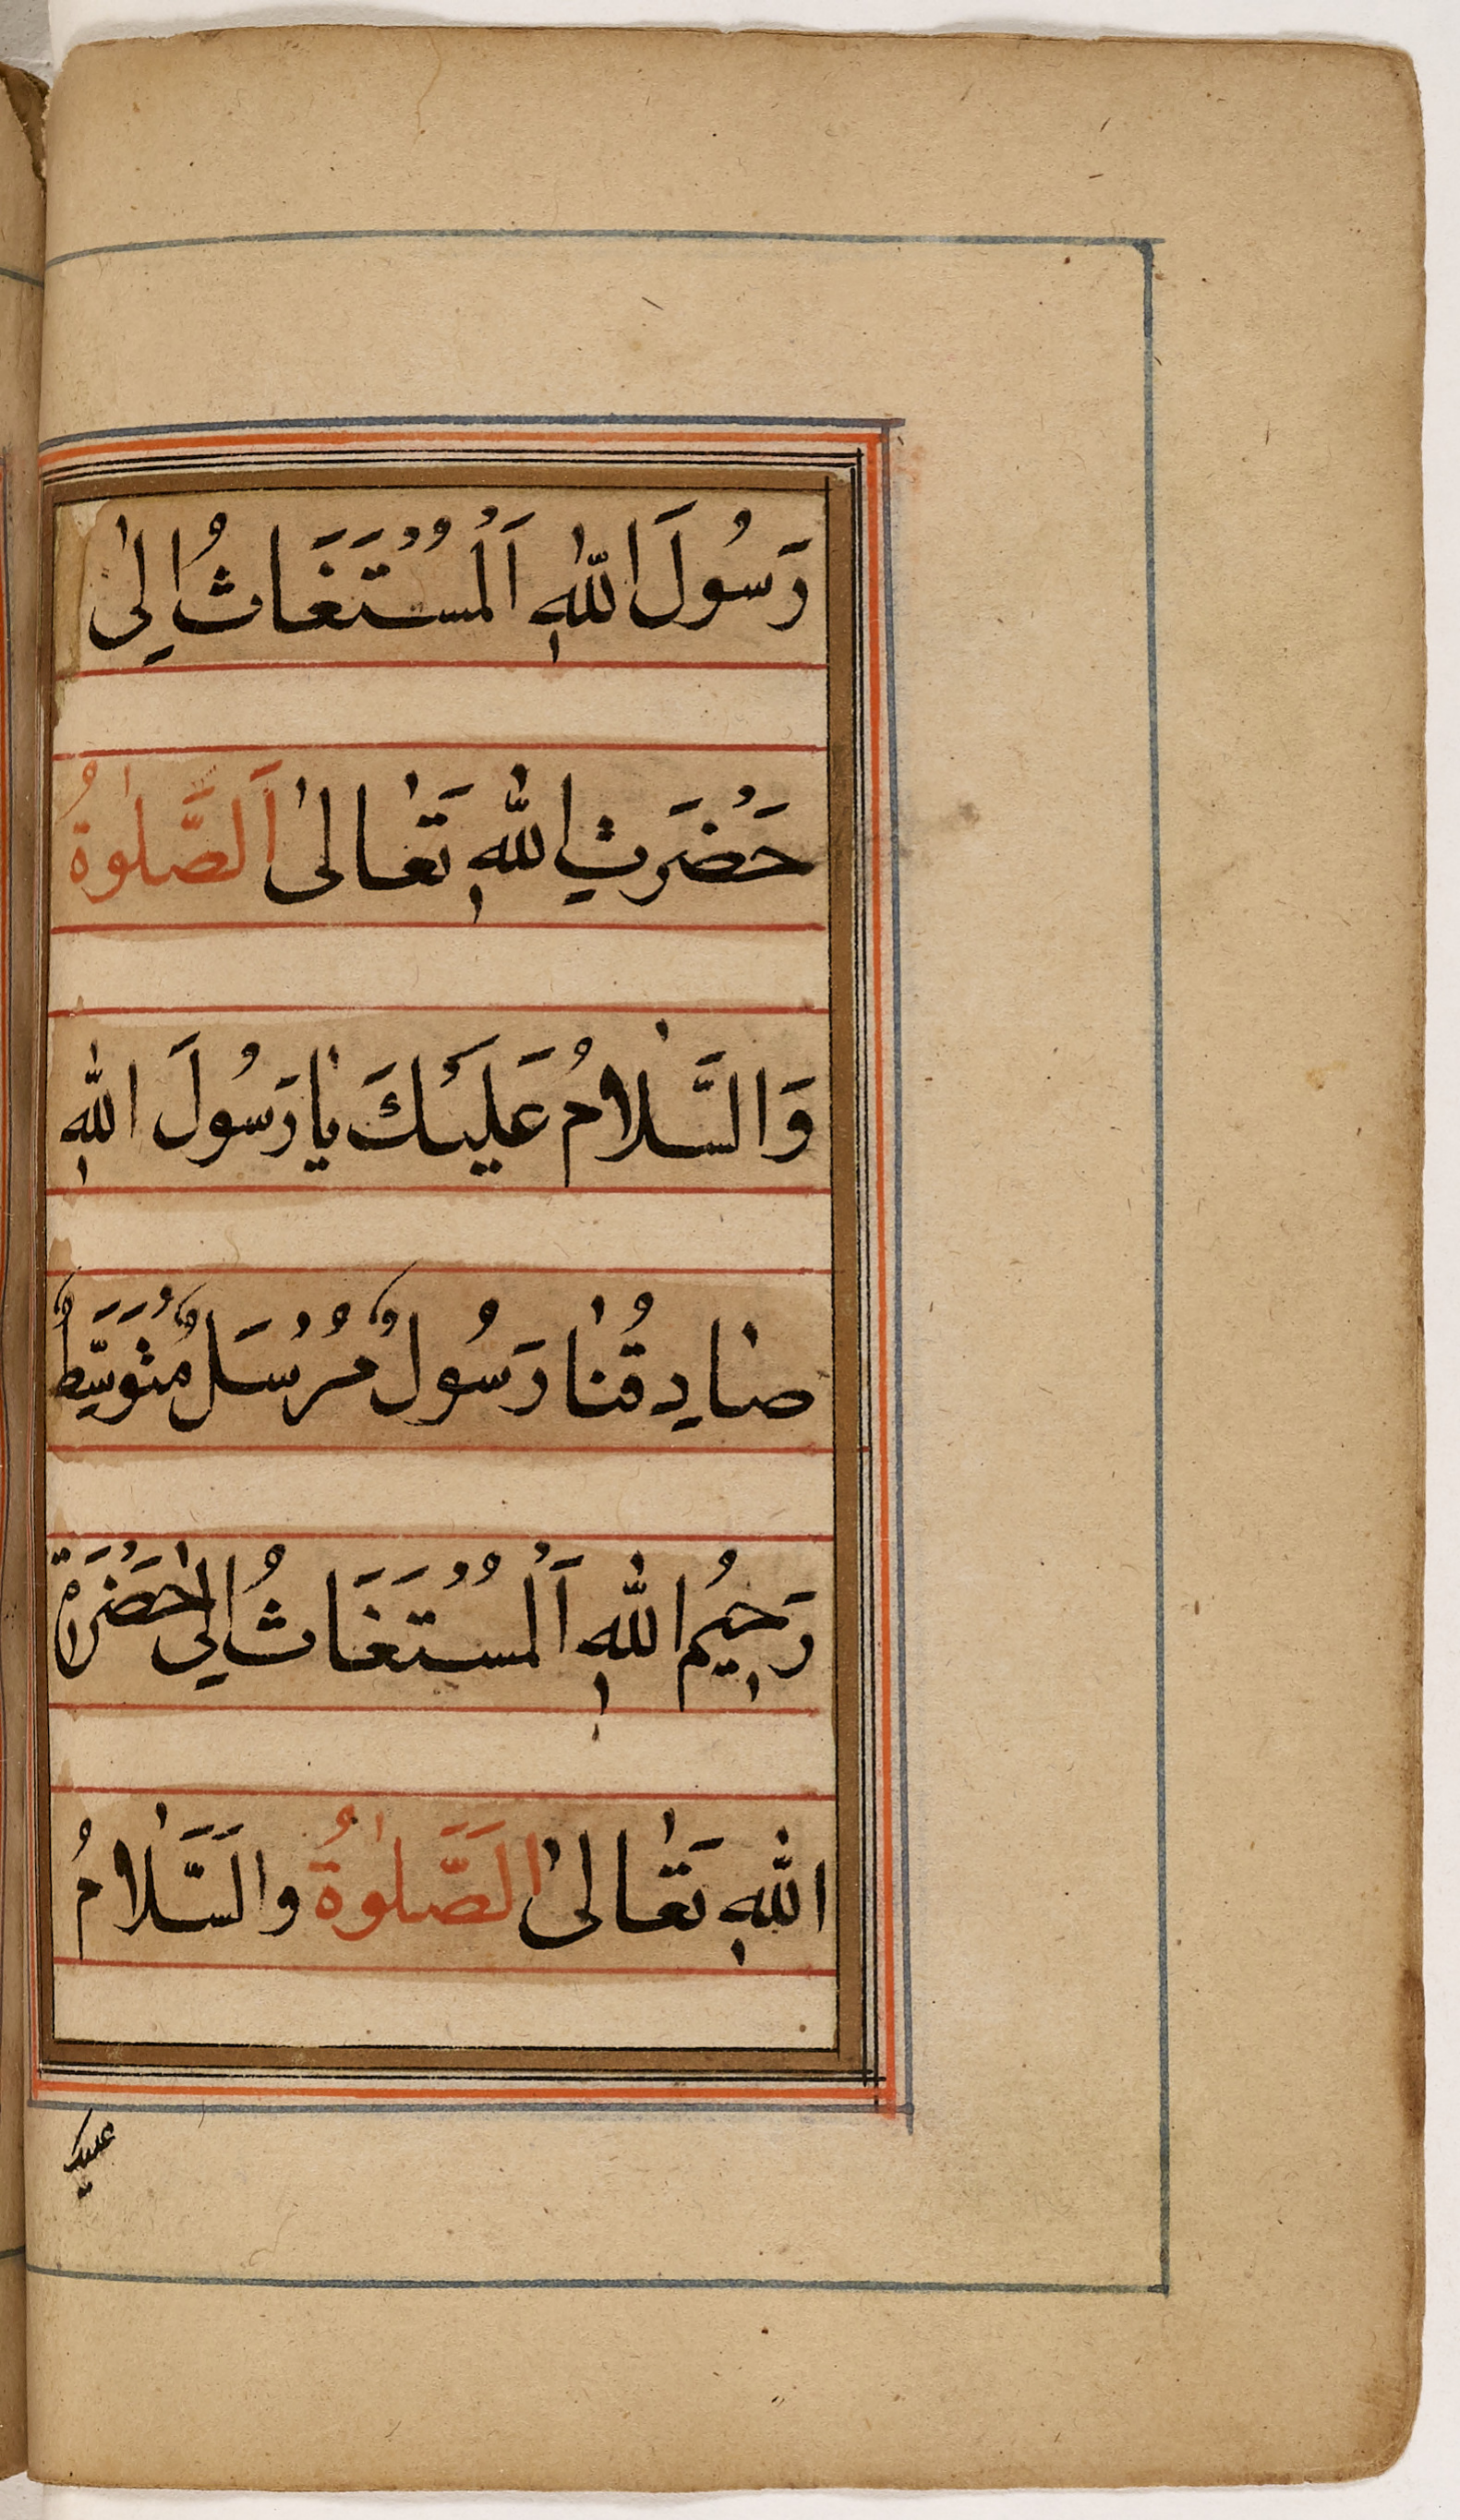 رَسُولَ اللّٰهِ اَلْمُسْتَغَاثُ اِلٰى
حَضْرَتِ اللّٰهِ تَعَالٰى اَلصَّلٰوةُ
وَالسَّلَامُ عَلَيْكَ يَا رَسُولَ اللّٰهِ
صَادِقُنَا رَسُولٌ مُرْسَلٌ مُتَوَسِّطٌ
رَحِيْمُ اللّٰهِ اَلْمُسْتَغَاثُ اِلٰى حَضْرَةِ
اللّٰهِ تَعَالٰى الَصَّلٰوةُ والَسَّلَامُ
علیک